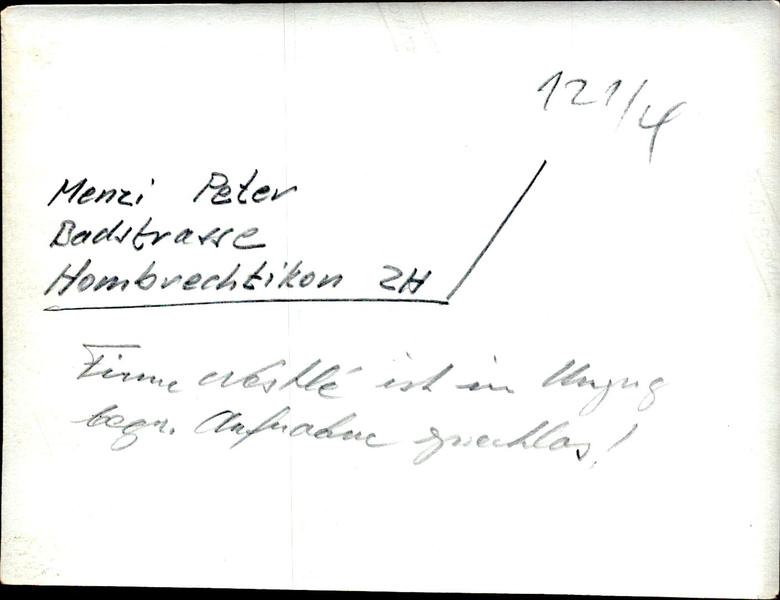 121/4
Menzi Peter
Badstrasse
Hombrechtikon ZH
Firma Nestlé ist im Umzug
begr. Aufnahme zwecklos!